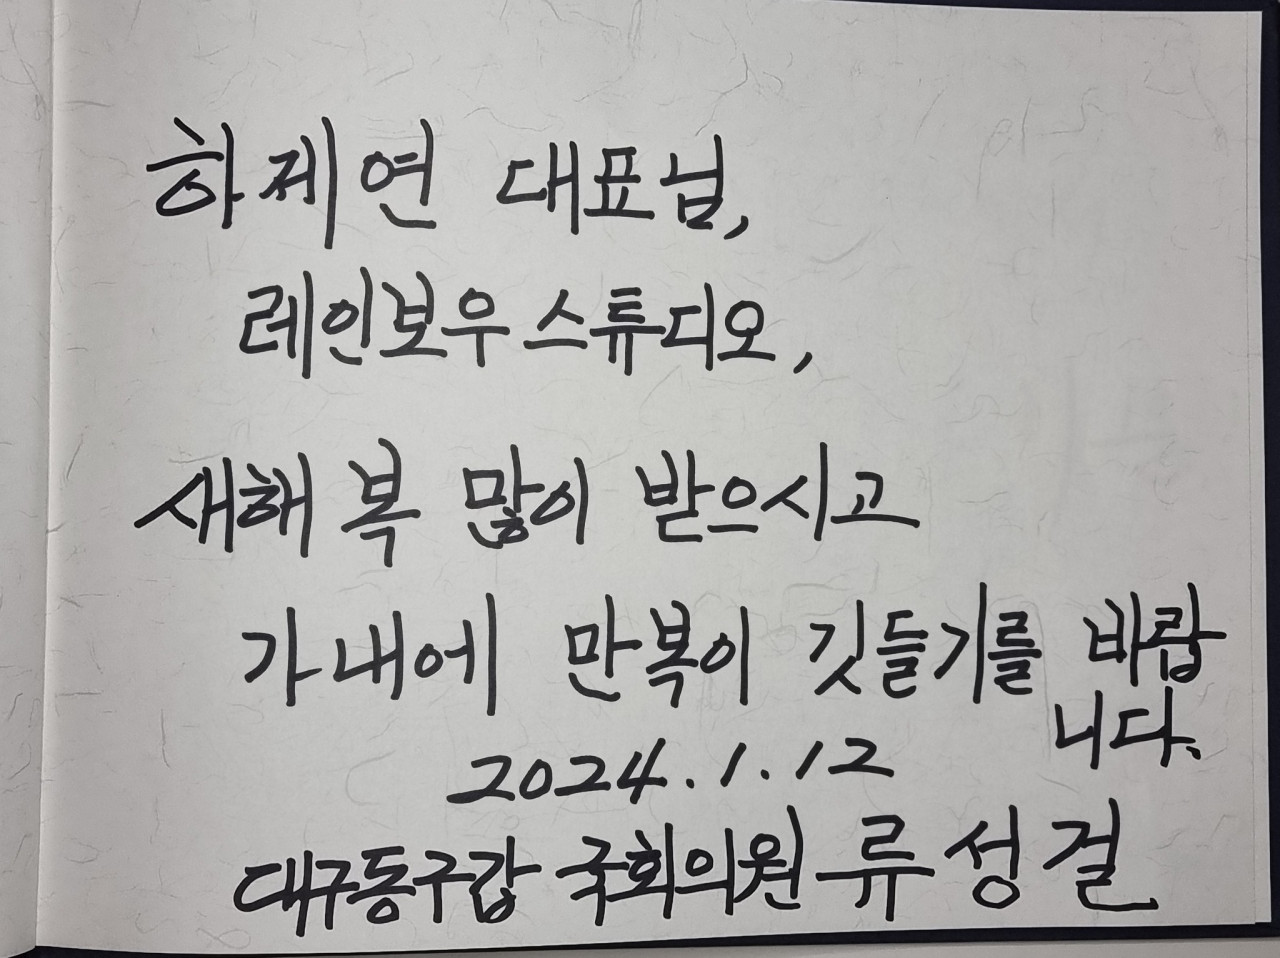 하제연 대표님,
레인보우 스튜디오,
새해 복 많이 받으시고
가내에 만복이 깃들기를 바랍
니다.
2024.1.12
대구동구갑 국회의원 류성걸